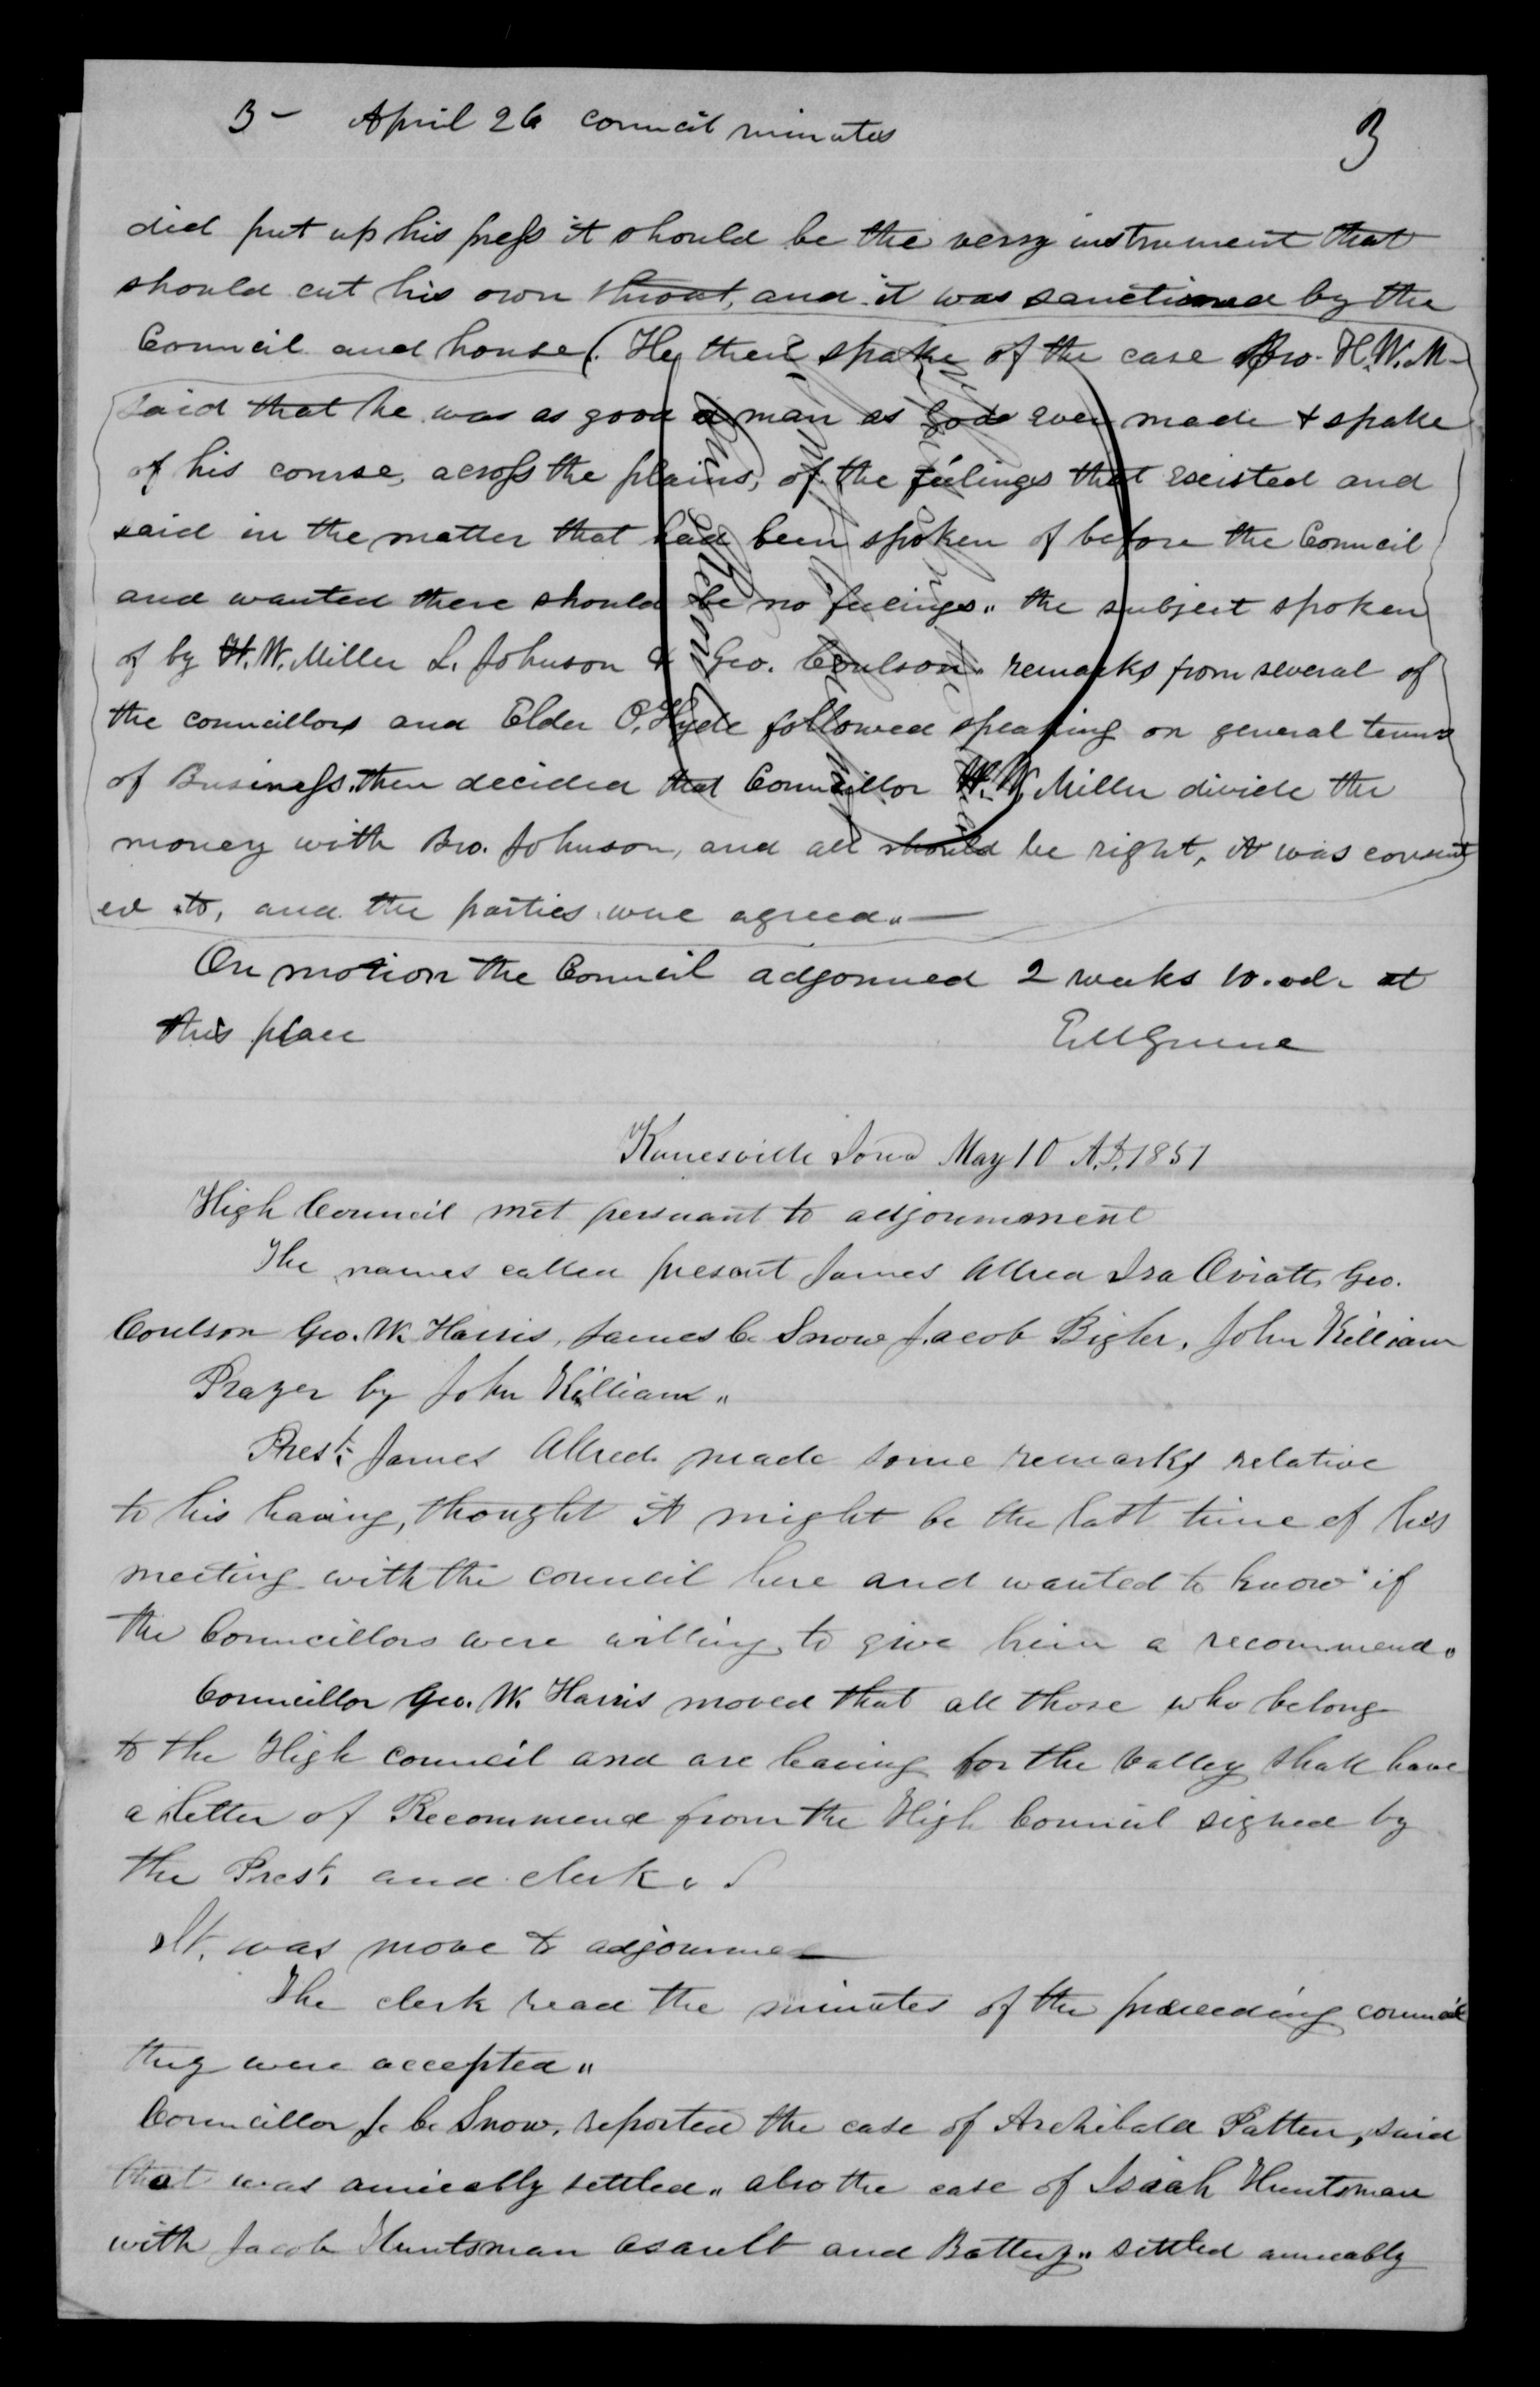 3 - April 26 council minutes
3
did put up his press it should be the very instrument that
should cut his own throat, and it was sanctioned by the
Council and house. He then spake of the case Bro. H. W. M-
said that he was as good a man as God ever made & spake
of his course, across the plains, of the feelings that existed and
said in the matter that had been spoken of before the Council
and wanted there should be no feelings" the subject spoken
of by H. W. Miller L. Johnson & Geo. Coulson" remarks from several of
the councillors and Elder O. Hyde followed speaking on general terms
of Business. then decided that Councillor H. W. Miller divide the
money with Bro. Johnson, and all should be right, it was consent
ed to, and the parties were agreed."
On motion the Council adjourned 2 weeks to. at
this place
E M Greene
Kanesville Iowa May 10 A.D. 1851
High Council met persuant to adjournment
The names called present James Allred Ira Oviatt, Geo.
Coulson Geo. W. Harris, James C. Snow Jacob Bigler, John Killian
Prayer by John Killian"
Prest. James Allred made some remarks relative
to his leaving, thought it might be the last time of his
meeting with the council here and wanted to know if
the Councillors were willing to give him a recommend.
Councillor Geo. W. Harris moved that all those who belong
to the High council and are leaving for the Valley shall have
a letter of Recommend from the High Council signed by
the Prest. and clerk.
It was move to adjourned
The clerk read the minutes of the preceeding council
they were accepted"
Councillor J. C. Snow, reported the case of Archibald Patten, said
that was amicably settled" also the case of Isaah Huntsman
with Jacob Huntsman asault and Battery" settled amicably